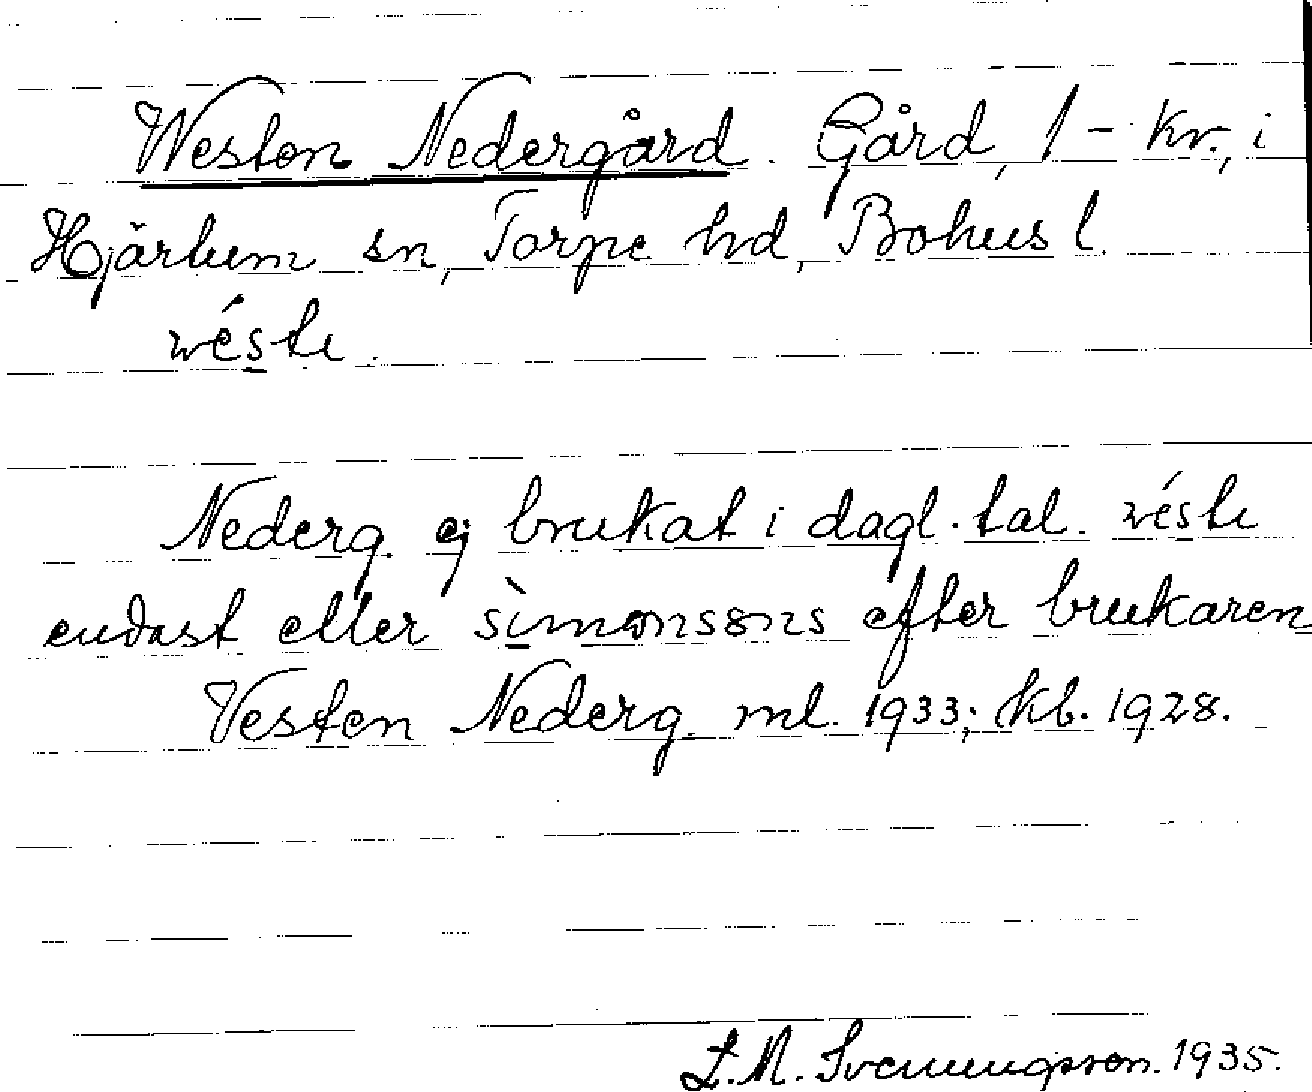 Westen Nedergård. Gård, 1 - kr., i
Hjärtum sn, Torpe hd, Bohus l.
véste.
Nederg. ej brukat i dagl. tal. véste
endast eller sìmonsøns efter brukaren
Vesten Nederg. ml. 1933; kb. 1928.
L.M. Svenungsson. 1935.